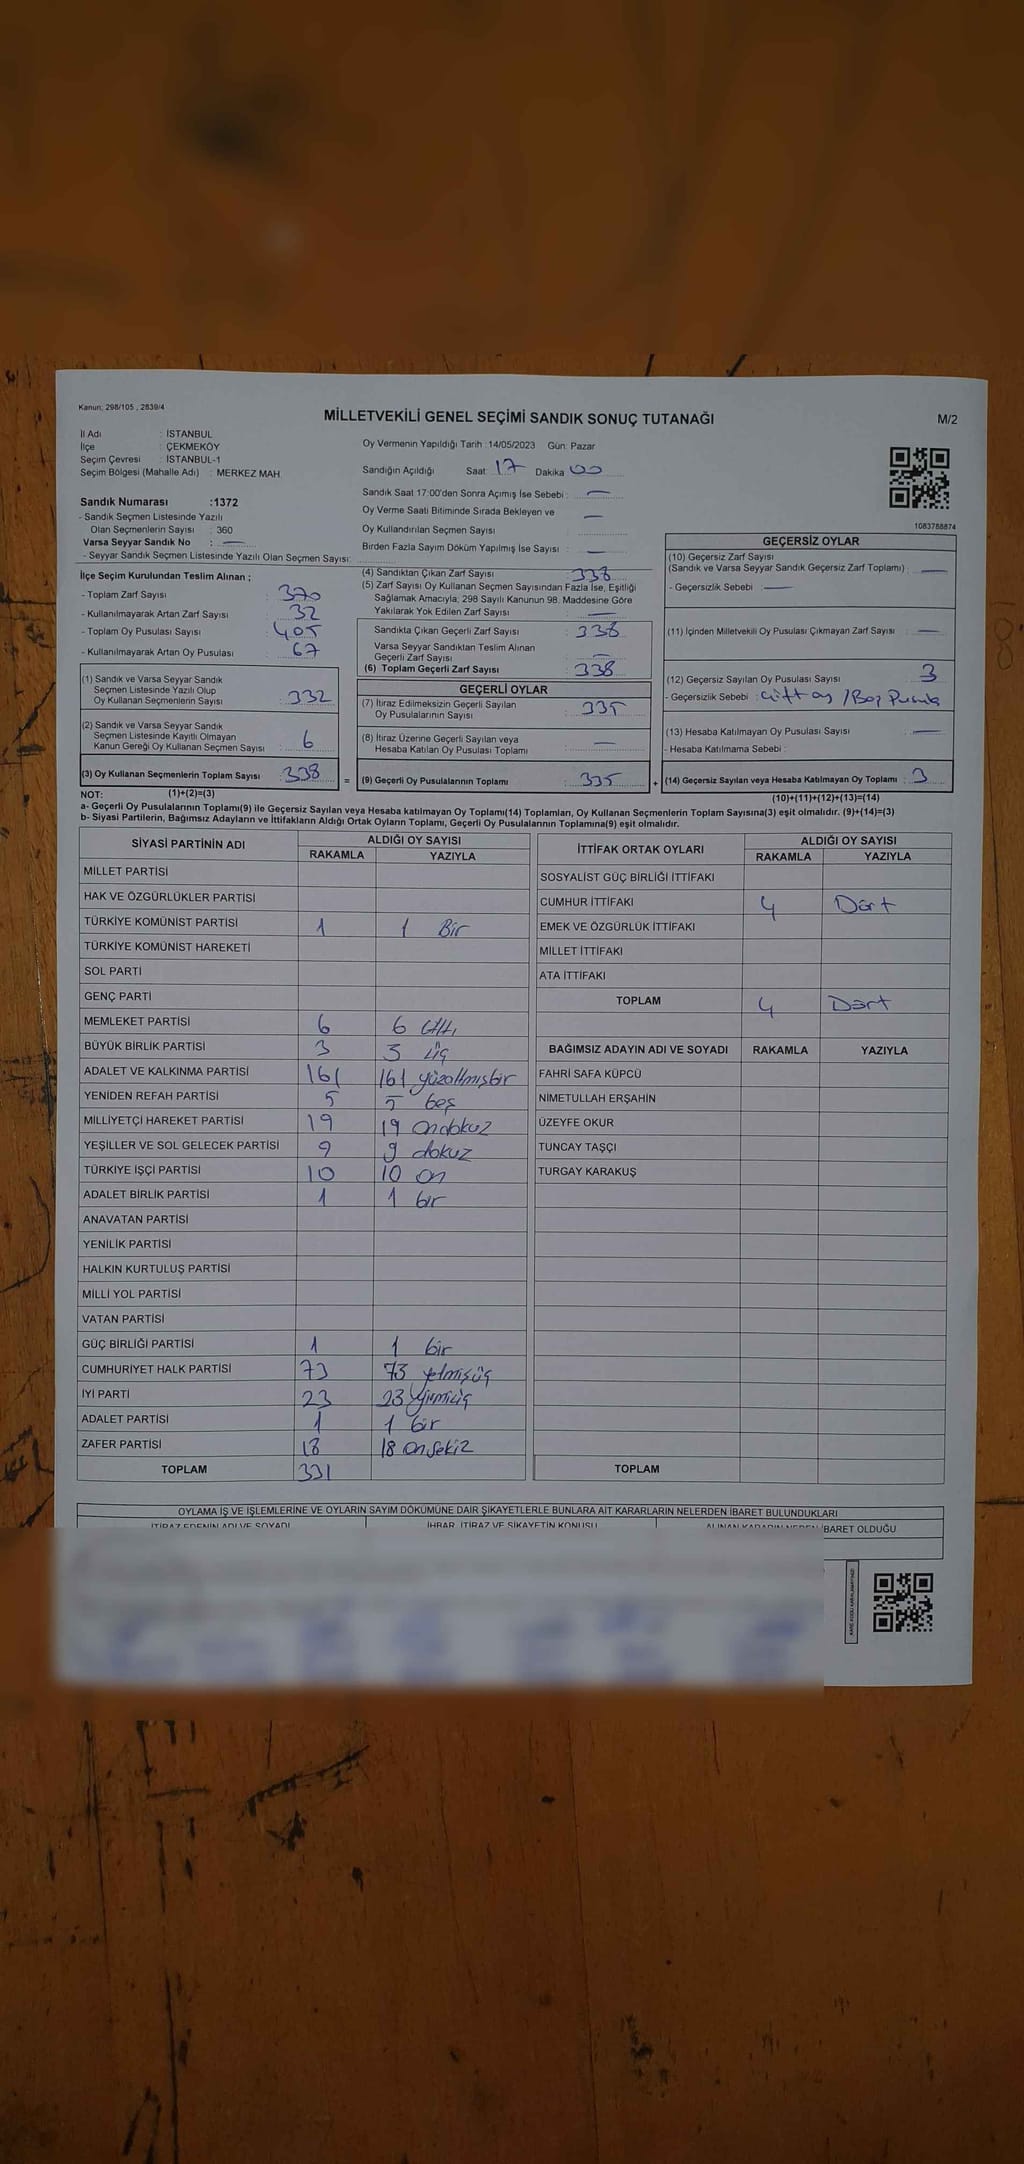 Kanun; 298/105 , 2839/4
MİLLETVEKİLİ GENEL SEÇİMİ SANDIK SONUÇ TUTANAĞI
M/2
İl Adı : İSTANBUL
İlçe : ÇEKMEKÖY
Seçim Çevresi : İSTANBUL-1
Seçim Bölgesi (Mahalle Adı) : MERKEZ MAH.
Sandık Numarası :1372
- Sandık Seçmen Listesinde Yazılı
Olan Seçmenlerin Sayısı : 360
Varsa Seyyar Sandık No : —
- Seyyar Sandık Seçmen Listesinde Yazılı Olan Seçmen Sayısı:
Oy Vermenin Yapıldığı Tarih :14/05/2023 Gün: Pazar
Sandığın Açıldığı Saat: 17 Dakika 00
Sandık Saat 17:00'den Sonra Açımış İse Sebebi : —
Oy Verme Saati Bitiminde Sırada Bekleyen ve
Oy Kullandırılan Seçmen Sayısı : —
Birden Fazla Sayım Döküm Yapılmış İse Sayısı : —
1083788874
İlçe Seçim Kurulundan Teslim Alınan ;
- Toplam Zarf Sayısı : 370
- Kullanılmayarak Artan Zarf Sayısı : 32
- Toplam Oy Pusulası Sayısı : 405
- Kullanılmayarak Artan Oy Pusulası : 67
(1) Sandık ve Varsa Seyyar Sandık
Seçmen Listesinde Yazılı Olup
Oy Kullanan Seçmenlerin Sayısı : 332
(2) Sandık ve Varsa Seyyar Sandık
Seçmen Listesinde Kayıtlı Olmayan
Kanun Gereği Oy Kullanan Seçmen Sayısı : 6
(3) Oy Kullanan Seçmenlerin Toplam Sayısı : 338
(4) Sandıktan Çıkan Zarf Sayısı : 338
(5) Zarf Sayısı Oy Kullanan Seçmen Sayısından Fazla İse, Eşitliği
Sağlamak Amacıyla; 298 Sayılı Kanunun 98. Maddesine Göre
Yakılarak Yok Edilen Zarf Sayısı : —
Sandıkta Çıkan Geçerli Zarf Sayısı : 338
Varsa Seyyar Sandıktan Teslim Alınan
Geçerli Zarf Sayısı : —
(6) Toplam Geçerli Zarf Sayısı : 338
GEÇERLİ OYLAR
(7) İtiraz Edilmeksizin Geçerli Sayılan
Oy Pusulalarının Sayısı : 335
(8) İtiraz Üzerine Geçerli Sayılan veya
Hesaba Katılan Oy Pusulası Toplamı : —
= (9) Geçerli Oy Pusulalarının Toplamı : 335
GEÇERSİZ OYLAR
(10) Geçersiz Zarf Sayısı
(Sandık ve Varsa Seyyar Sandık Geçersiz Zarf Toplamı) : —
- Geçersizlik Sebebi : —
(11) İçinden Milletvekili Oy Pusulası Çıkmayan Zarf Sayısı : —
(12) Geçersiz Sayılan Oy Pusulası Sayısı : 3
- Geçersizlik Sebebi : Çift oy / Boş Pusula
(13) Hesaba Katılmayan Oy Pusulası Sayısı : —
- Hesaba Katılmama Sebebi :
+ (14) Geçersiz Sayılan veya Hesaba Katılmayan Oy Toplamı : 3
NOT: (1)+(2)=(3)
(10)+(11)+(12)+(13)=(14)
a- Geçerli Oy Pusulalarının Toplamı(9) ile Geçersiz Sayılan veya Hesaba katılmayan Oy Toplamı(14) Toplamları, Oy Kullanan Seçmenlerin Toplam Sayısına(3) eşit olmalıdır. (9)+(14)=(3)
b- Siyasi Partilerin, Bağımsız Adayların ve İttifakların Aldığı Ortak Oyların Toplamı, Geçerli Oy Pusulalarının Toplamına(9) eşit olmalıdır.
SİYASİ PARTİNİN ADI ALDIĞI OY SAYISI
RAKAMLA YAZIYLA
MİLLET PARTİSİ
HAK VE ÖZGÜRLÜKLER PARTİSİ
TÜRKİYE KOMÜNİST PARTİSİ 1 1 Bir
TÜRKİYE KOMÜNİST HAREKETİ
SOL PARTİ
GENÇ PARTİ
MEMLEKET PARTİSİ 6 6 altı
BÜYÜK BİRLİK PARTİSİ 3 3 üç
ADALET VE KALKINMA PARTİSİ 161 161 yüzaltmışbir
YENİDEN REFAH PARTİSİ 5 5 beş
MİLLİYETÇİ HAREKET PARTİSİ 19 19 ondokuz
YEŞİLLER VE SOL GELECEK PARTİSİ 9 9 dokuz
TÜRKİYE İŞÇİ PARTİSİ 10 10 on
ADALET BİRLİK PARTİSİ 1 1 bir
ANAVATAN PARTİSİ
YENİLİK PARTİSİ
HALKIN KURTULUŞ PARTİSİ
MİLLİ YOL PARTİSİ
VATAN PARTİSİ
GÜÇ BİRLİĞİ PARTİSİ 1 1 bir
CUMHURİYET HALK PARTİSİ 73 73 yetmişüç
İYİ PARTİ 23 23 yirmiüç
ADALET PARTİSİ 1 1 bir
ZAFER PARTİSİ 18 18 onsekiz
TOPLAM 331
İTTİFAK ORTAK OYLARI ALDIĞI OY SAYISI
RAKAMLA YAZIYLA
SOSYALİST GÜÇ BİRLİĞİ İTTİFAKI
CUMHUR İTTİFAKI 4 Dört
EMEK VE ÖZGÜRLÜK İTTİFAKI
MİLLET İTTİFAKI
ATA İTTİFAKI
TOPLAM 4 Dört
BAĞIMSIZ ADAYIN ADI VE SOYADI RAKAMLA YAZIYLA
FAHRİ SAFA KÜPCÜ
NİMETULLAH ERŞAHİN
ÜZEYFE OKUR
TUNCAY TAŞÇI
TURGAY KARAKUŞ
TOPLAM
OYLAMA İŞ VE İŞLEMLERİNE VE OYLARIN SAYIM DÖKÜMÜNE DAİR ŞİKAYETLERLE BUNLARA AİT KARARLARIN NELERDEN İBARET BULUNDUKLARI
İTİRAZ EDENİN ADI VE SOYADI İHBAR, İTİRAZ VE ŞİKAYETİN KONUSU ALINAN KARARIN NEDEN İBARET OLDUĞU